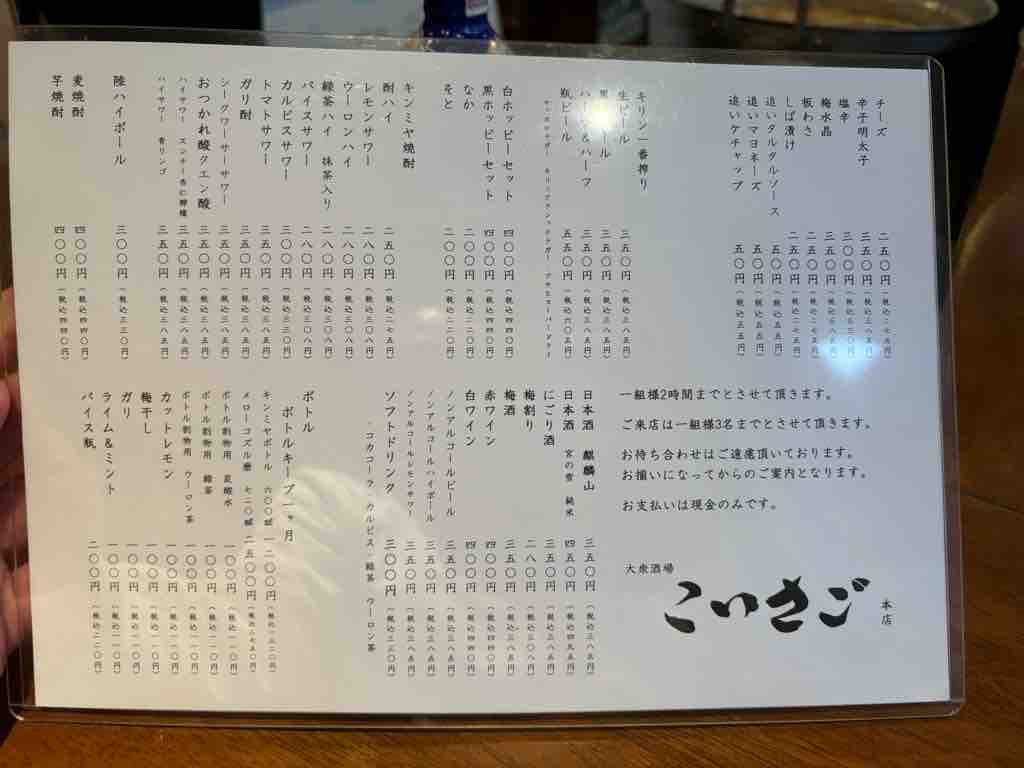 チーズ 二五〇円(税込二七五円)
辛子明太子 三五〇円(税込三八五円)
塩辛 三〇〇円(税込三三〇円)
梅水晶 三五〇円(税込三八五円)
板わさ 二五〇円(税込二七五円)
しば漬け 二五〇円(税込二七五円)
追いタルタルソース 五〇円(税込五五円)
追いマヨネーズ 五〇円(税込五五円)
追いケチャップ 五〇円(税込五五円)
キリン一番搾り
生ビール 三五〇円(税込三八五円)
ハーフ&ハーフ 三五〇円(税込三八五円)
瓶ビール 五五〇円(税込六〇五円)
サッポロラガー キリンクラシックラガー アサヒスーパードライ
白ホッピーセット 四〇〇円(税込四四〇円)
黒ホッピーセット 四〇〇円(税込四四〇円)
なか 二〇〇円(税込二二〇円)
そと 二〇〇円(税込二二〇円)
キンミヤ焼酎
酎ハイ 二五〇円(税込二七五円)
レモンサワー 二八〇円(税込三〇八円)
ウーロンハイ 二八〇円(税込三〇八円)
緑茶ハイ 抹茶入り 二八〇円(税込三〇八円)
バイスサワー 二八〇円(税込三〇八円)
カルピスサワー 三〇〇円(税込三三〇円)
トマトサワー 三五〇円(税込三八五円)
ガリ酎 三五〇円(税込三八五円)
シークワーサーサワー 三五〇円(税込三八五円)
おつかれ酸クエン酸 三五〇円(税込三八五円)
ハイサワー スンチー杏仁檸檬 三五〇円(税込三八五円)
ハイサワー 青リンゴ 三五〇円(税込三八五円)
陸ハイボール 三〇〇円(税込三三〇円)
麦焼酎 四〇〇円(税込四四〇円)
芋焼酎 四〇〇円(税込四四〇円)
一組様2時間までとさせて頂きます。
ご来店は一組様3名までとさせて頂きます。
お待ち合わせはご遠慮頂いております。
お揃いになってからのご案内となります。
お支払いは現金のみです。
大衆酒場
こいさご
本店
日本酒 麒麟山 三五〇円(税込三八五円)
日本酒 宮の雪 純米 四五〇円(税込四九五円)
にごり酒 三五〇円(税込三八五円)
梅割り 二八〇円(税込三〇八円)
梅酒 三五〇円(税込三八五円)
赤ワイン 四〇〇円(税込四四〇円)
白ワイン 四〇〇円(税込四四〇円)
ノンアルコールビール 三五〇円(税込三八五円)
ノンアルコールハイボール 三五〇円(税込三八五円)
ノンアルコールレモンサワー 三五〇円(税込三八五円)
ソフトドリンク 三〇〇円(税込三三〇円)
・コカコーラ・カルピス・緑茶・ウーロン茶
ボトル
ボトルキープ一ヶ月
キンミヤボトル 六〇〇㎖ 一二〇〇円(税込一三二〇円)
メローコヅル磨 七二〇㎖ 二五〇〇円(税込二七五〇円)
ボトル割物用 炭酸水 一〇〇円(税込一一〇円)
ボトル割物用 緑茶 一〇〇円(税込一一〇円)
ボトル割物用 ウーロン茶 一〇〇円(税込一一〇円)
カットレモン 一〇〇円(税込一一〇円)
梅干し 一〇〇円(税込一一〇円)
ガリ 一〇〇円(税込一一〇円)
ライム&ミント 一〇〇円(税込一一〇円)
バイス瓶 二〇〇円(税込二二〇円)